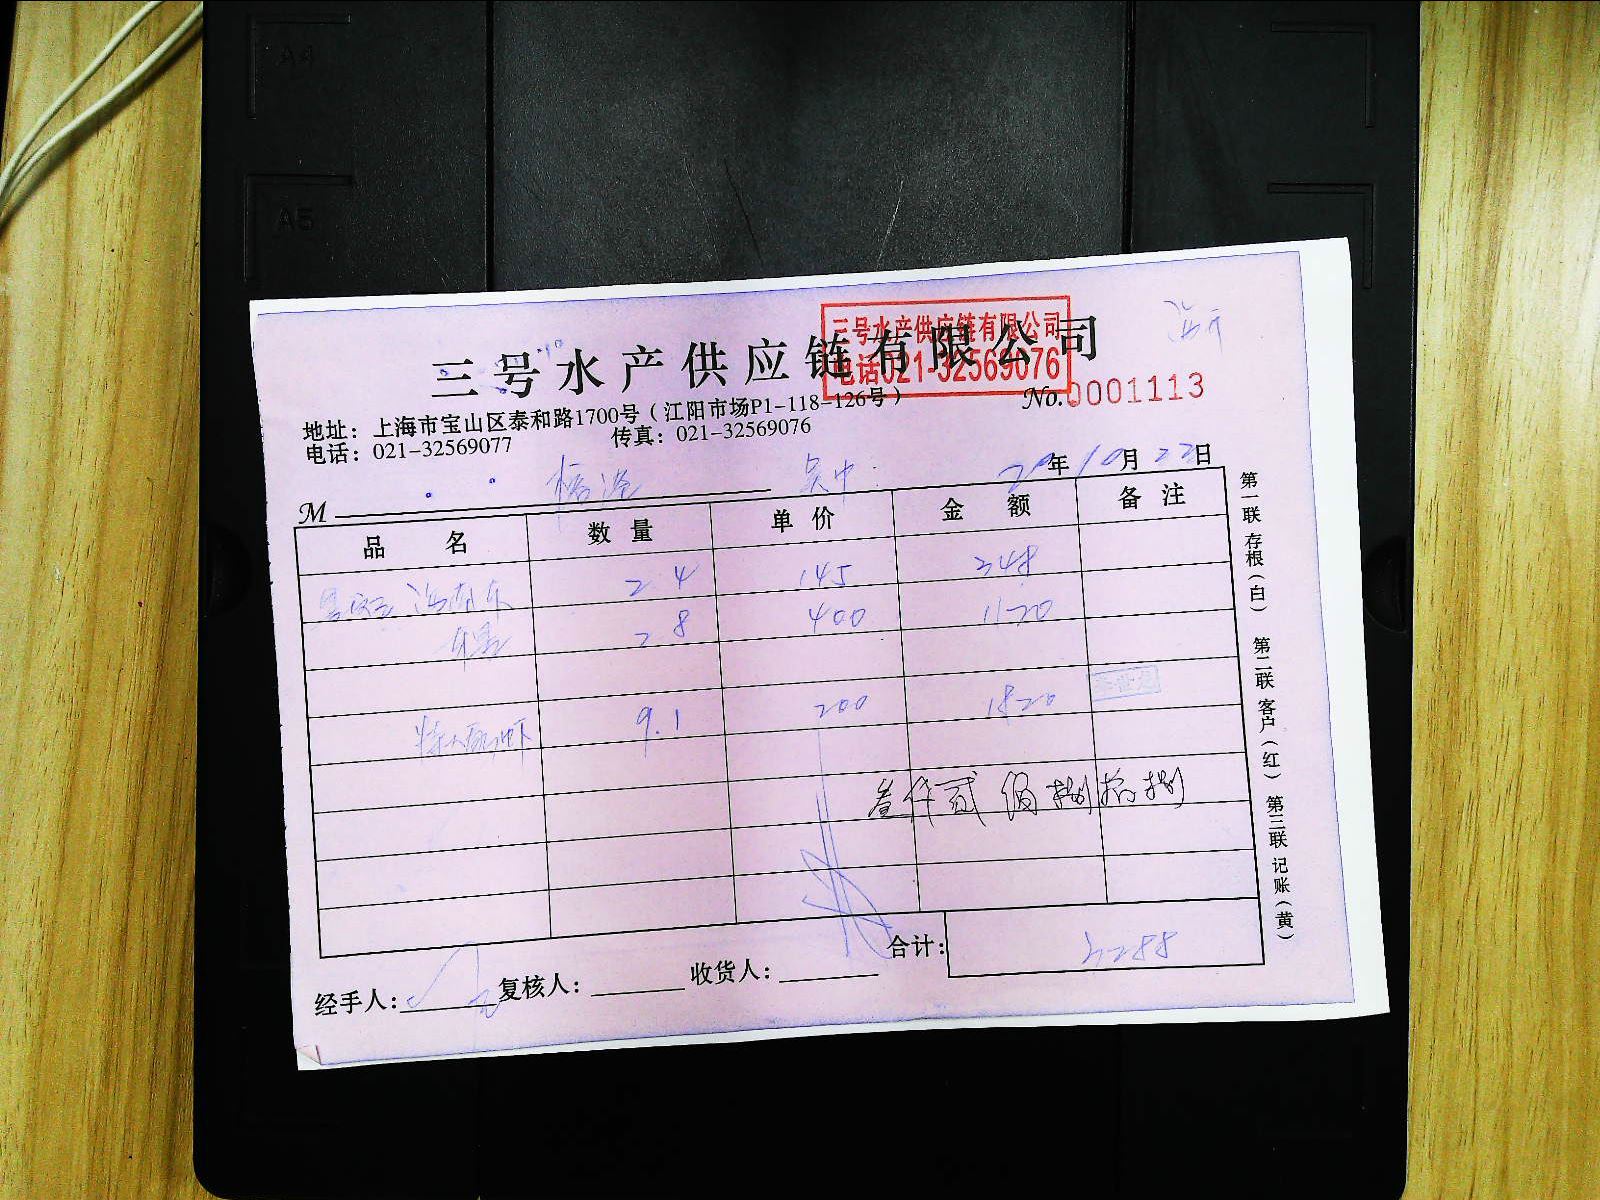 A4
A5
三号水产供应链有限公司
三号水产供应链有限公司
电话021-32569076
No.0001113
地址：上海市宝山区泰和路1700号（江阳市场P1-118-126号）
电话：021-32569077 传真：021-32569076
M 吴中
20年10月22日
品名 数量 单价 金额 备注
2.4 145 348
2.8 400 1120
9.1 200 1820
叁仟贰佰捌拾捌
合计: 3288
经手人: 复核人: 收货人:
第一联 存根（白） 第二联 客户（红） 第三联 记账（黄）